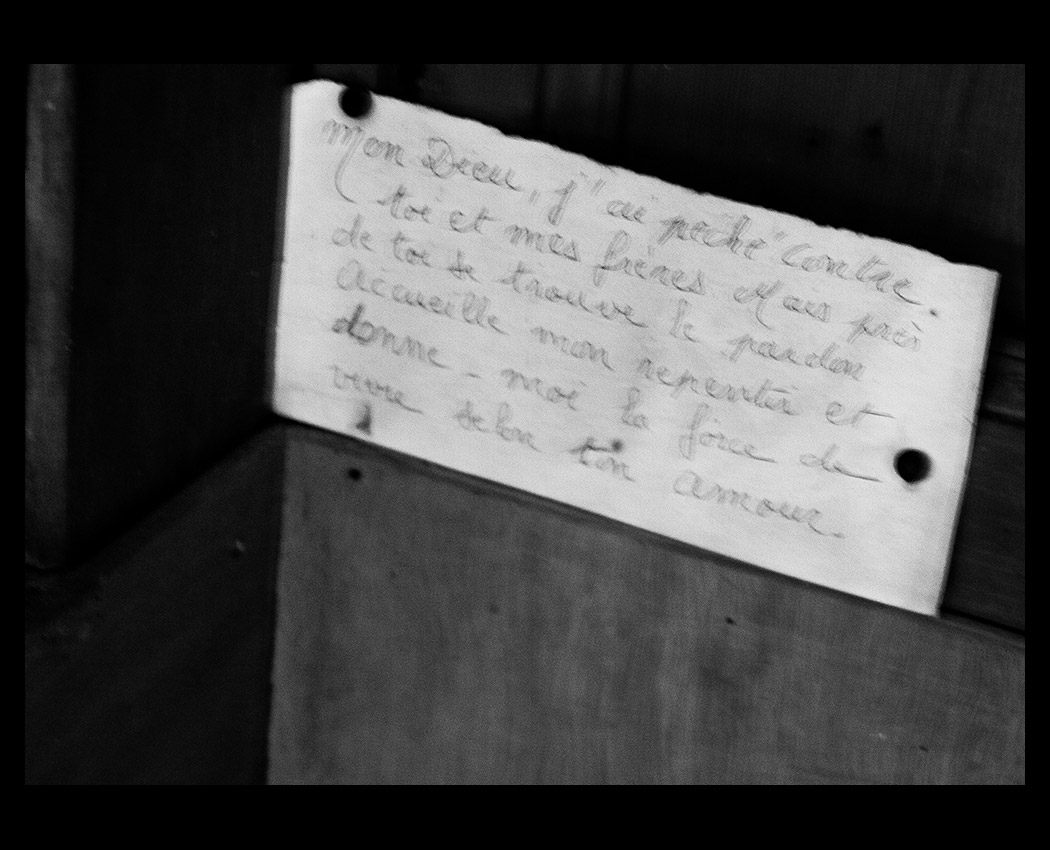 Mon Dieu, j'ai péché contre
toi et mes frères Mais près
de toi se trouve le pardon
Accueille mon repentir et
donne-moi la force de
vivre selon ton amour.